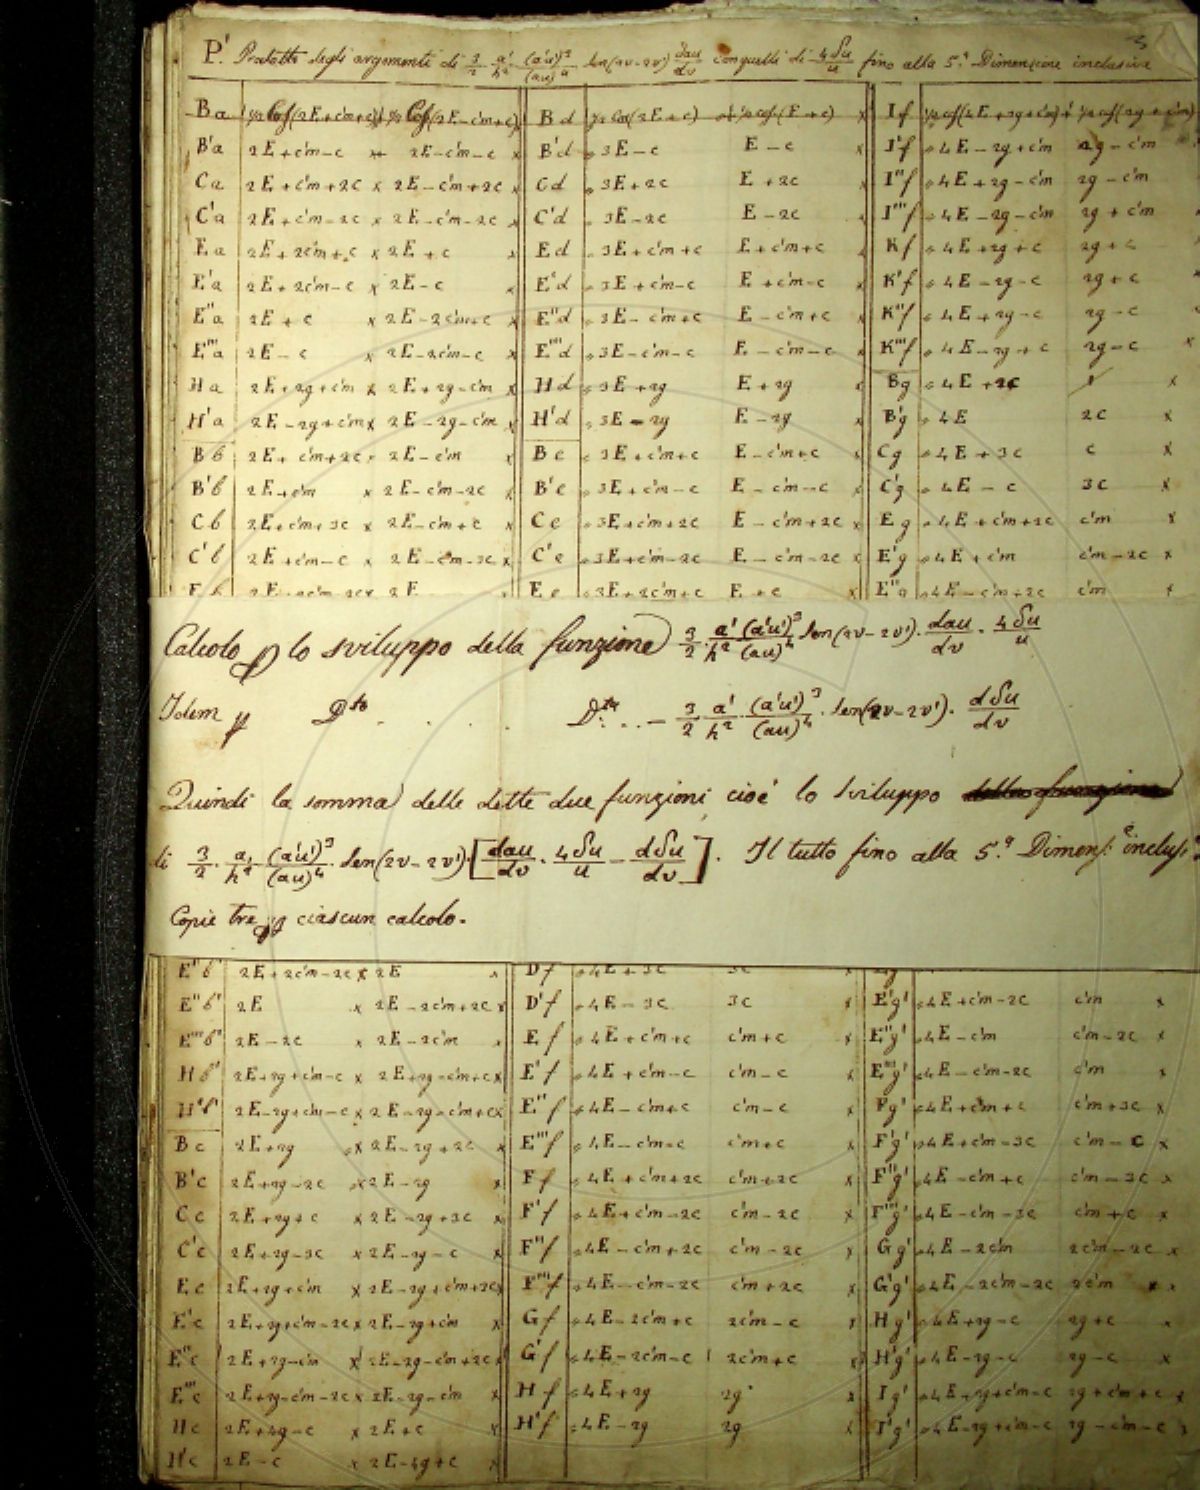 P'. Prodotto degli argomenti di 3/2 · a'/h² · (a'u')³/(au)⁴ sen(2v-2v') dau/dv con quelli di 4δu/u fino alla 5.ª Dimensione inclusive
Ba ½ Cos(2E+c'm+c) + ½ Cos(2E-c'm+c) Bd ½ Cos(3E+c) + ½ cos(E+c) If ½ cos(4E+2g+c'm) + ½ cos(2g+c'm)
B'a 2E+c'm-c 2E-c'm-c x B'd 3E-c E-c x I'f 4E-2g+c'm 2g-c'm
Ca 2E+c'm+2c x 2E-c'm+2c x Cd 3E+2c E+2c I''f 4E+2g-c'm 2g-c'm
C'a 2E+c'm-2c x 2E-c'm-2c x C'd 3E-2c E-2c I'''f 4E-2g-c'm 2g+c'm
Ea 2E+2c'm+c x 2E+c x Ed 3E+c'm+c E+c'm+c Kf 4E+2g+c 2g+c
E'a 2E+2c'm-c x 2E-c x E'd 3E+c'm-c E+c'm-c x K'f 4E-2g-c 2g+c
E''a 2E+c x 2E-2c'm+c x E''d 3E-c'm+c E-c'm+c x K''f 4E+2g-c 2g-c
E'''a 2E-c x 2E-2c'm-c x E'''d 3E-c'm-c E-c'm-c x K'''f 4E-2g+c 2g-c x
Ha 2E+2g+c'm x 2E+2g-c'm x Hd 3E+2g E+2g Bg 4E+2c x
H'a 2E-2g+c'm x 2E-2g-c'm x H'd 3E-2g E-2g x B'g 4E 2c x
Bb 2E+c'm+2c 2E-c'm x Be 3E+c'm+c E-c'm+c x Cg 4E+3c c x
B'b 2E+c'm x 2E-c'm-2c x B'e 3E+c'm-c E-c'm-c x C'g 4E-c 3c x
Cb 2E+c'm+3c x 2E-c'm+c x Ce 3E+c'm+2c E-c'm+2c x Eg 4E+c'm+2c c'm x
C'b 2E+c'm-c x 2E-c'm-3c x C'e 3E+c'm-2c E-c'm-2c x E'g 4E+c'm c'm-2c x
Eb 2E 2E Ee 3E+2c'm+c E+c x E''g 4E-c'm+2c c'm x
Calcolo p lo sviluppo della funzione 3/2 · a'/h² · (a'u')³/(au)⁴ sen(2v-2v') · dau/dv · 4δu/u
Idem p D.to . . . . D.ta . . - 3/2 · a'/h² · (a'u')³/(au)⁴ · sen(2v-2v') · dδu/dv
Quindi la somma delle dette due funzioni, cioè lo sviluppo della funzione
di 3/2 · a'/h² · (a'u')³/(au)⁴ · sen(2v-2v') · [dau/dv · 4δu/u - dδu/dv]. Il tutto fino alla 5.ª Dimens.e inclusi.
Copie tre p ciascun calcolo.
E''b' 2E+2c'm-2c x 2E x Df 4E+3c 3c x
E''b' 2E x 2E-2c'm+2c x D'f 4E-3c 3c x E'g' 4E+c'm-2c c'm x
E'''b' 2E-2c x 2E-2c'm Ef 4E+c'm+c c'm+c x E''g' 4E-c'm c'm-2c x
Hb' 2E+2g+c'm-c x 2E+2g-c'm+c x E'f 4E+c'm-c c'm-c E'''g' 4E-c'm-2c c'm x
H'b' 2E-2g+c'm-c x 2E-2g-c'm+c x E''f 4E-c'm+c c'm-c x Fg' 4E+c'm+c c'm+3c x
Bc 2E+2g x 2E-2g+2c x E'''f 4E-c'm-c c'm+c x F'g' 4E+c'm-3c c'm-c x
B'c 2E+2g-2c x 2E-2g x Ff 4E+c'm+2c c'm+2c x F''g' 4E-c'm+c c'm-3c x
Cc 2E+2g+c x 2E-2g+3c x F'f 4E+c'm-2c c'm-2c x F'''g' 4E-c'm-3c c'm+c x
C'c 2E+2g-3c x 2E-2g-c x F''f 4E-c'm+2c c'm-2c x Gg' 4E-2c'm 2c'm-2c x
Ec 2E+2g+c'm x 2E-2g+c'm+2c x F'''f 4E-c'm-2c c'm+2c x G'g' 4E-2c'm-2c 2c'm x
E'c 2E+2g+c'm-2c x 2E-2g+c'm x Gf 4E-2c'm+c 2c'm-c x Hg' 4E+2g-c 2g+c x
E''c 2E+2g-c'm x 2E-2g-c'm+2c x G'f 4E-2c'm-c 2c'm+c x H'g' 4E-2g-c 2g-c x
E'''c 2E+2g-c'm-2c x 2E-2g-c'm x Hf 4E+2g 2g x Ig' 4E+2g+c'm-c 2g+c'm+c x
Hc 2E+4g-c x 2E+c x H'f 4E-2g 2g x I'g' 4E-2g+c'm-c 2g-c'm-c
H'c 2E-c x 2E-4g+c x